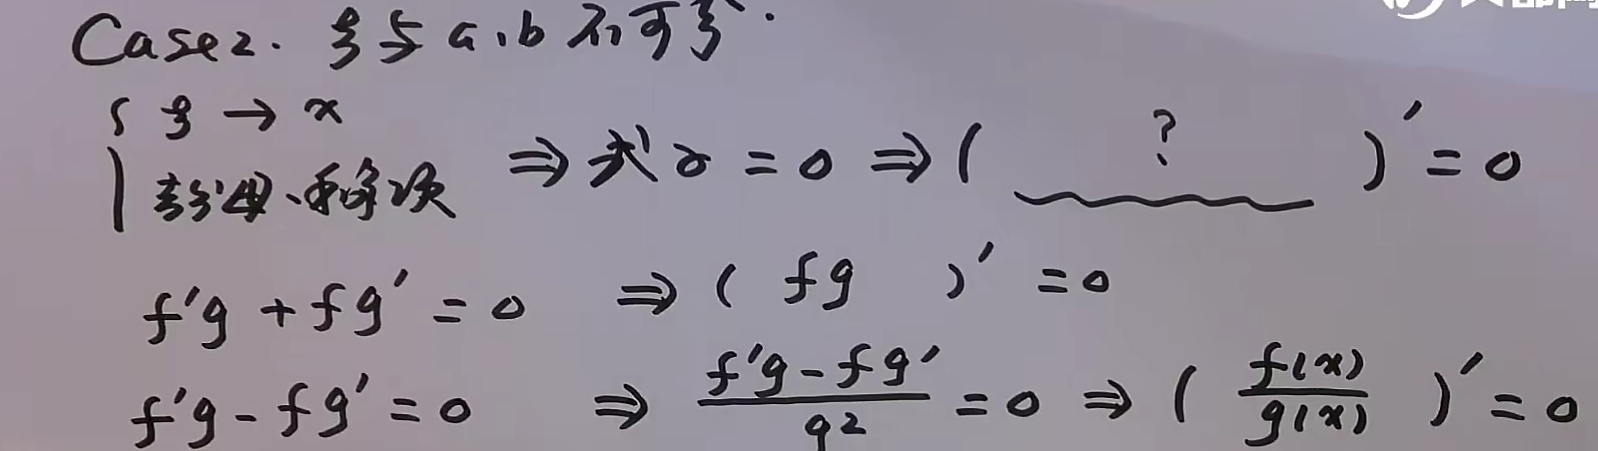 Case2. ξ与a,b不可分.
{ ξ → x
去分母、移项 ⇒ 式子 = 0 ⇒ ( ? )' = 0
f'g + fg' = 0 ⇒ ( fg )' = 0
f'g - fg' = 0 ⇒ \frac{f'g - fg'}{g^2} = 0 ⇒ ( \frac{f(x)}{g(x)} )' = 0